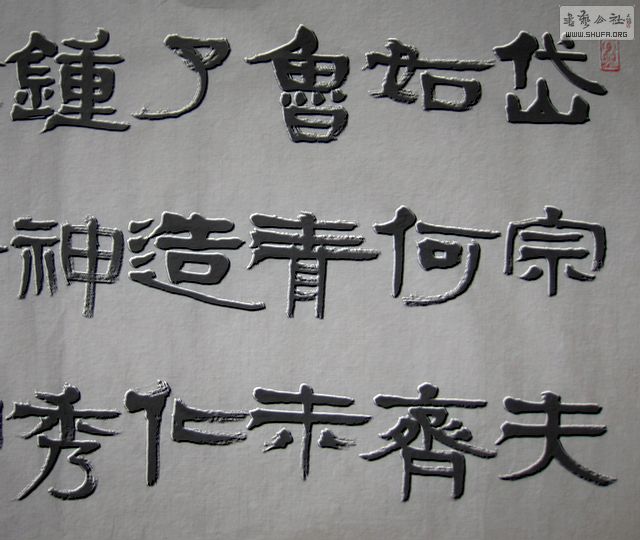 岱宗夫
如何齊
魯青未
了造化
鍾神秀
书艺公社
WWW.SHUFA.ORG